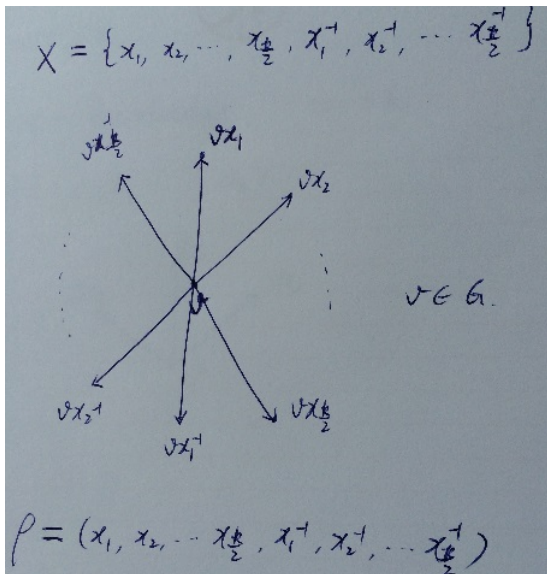 X = { x₁, x₂, ..., x_{k/2}, x₁⁻¹, x₂⁻¹, ... x_{k/2}⁻¹ }
vx_{k/2}⁻¹ vx₁
vx₂
v v ∈ G.
vx₂⁻¹ vx₁⁻¹ vx_{k/2}
ρ = (x₁, x₂, ... x_{k/2}, x₁⁻¹, x₂⁻¹, ... x_{k/2}⁻¹)